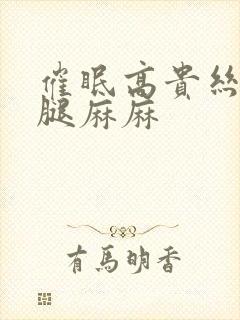 催眠高貴絲
腿麻麻
有馬明香